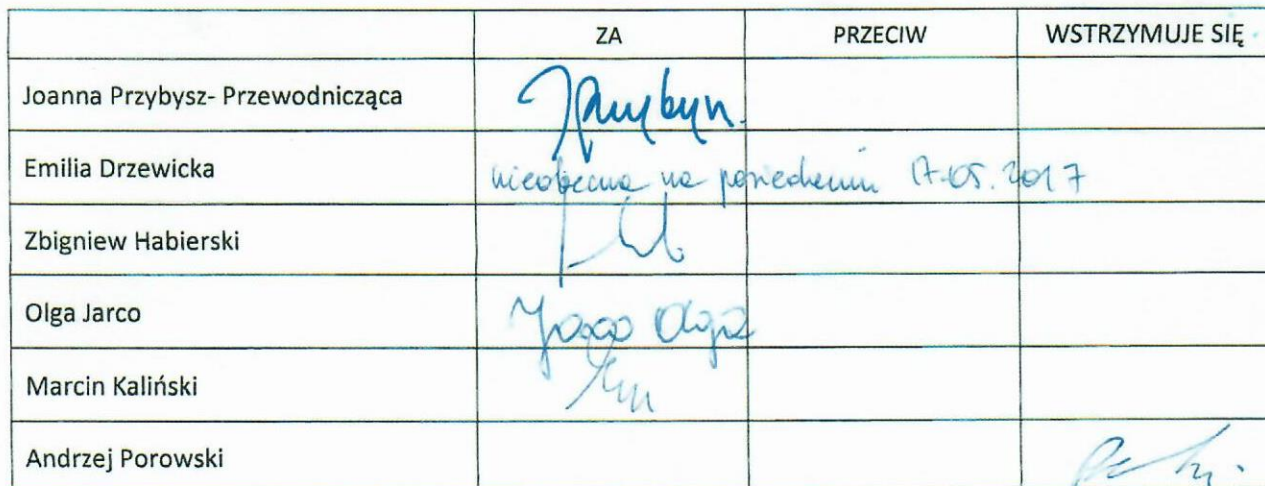 ZA PRZECIW WSTRZYMUJE SIĘ
Joanna Przybysz- Przewodnicząca
Emilia Drzewicka nieobecna na posiedzeniu 17.05.2017
Zbigniew Habierski
Olga Jarco Jarco Olga
Marcin Kaliński
Andrzej Porowski